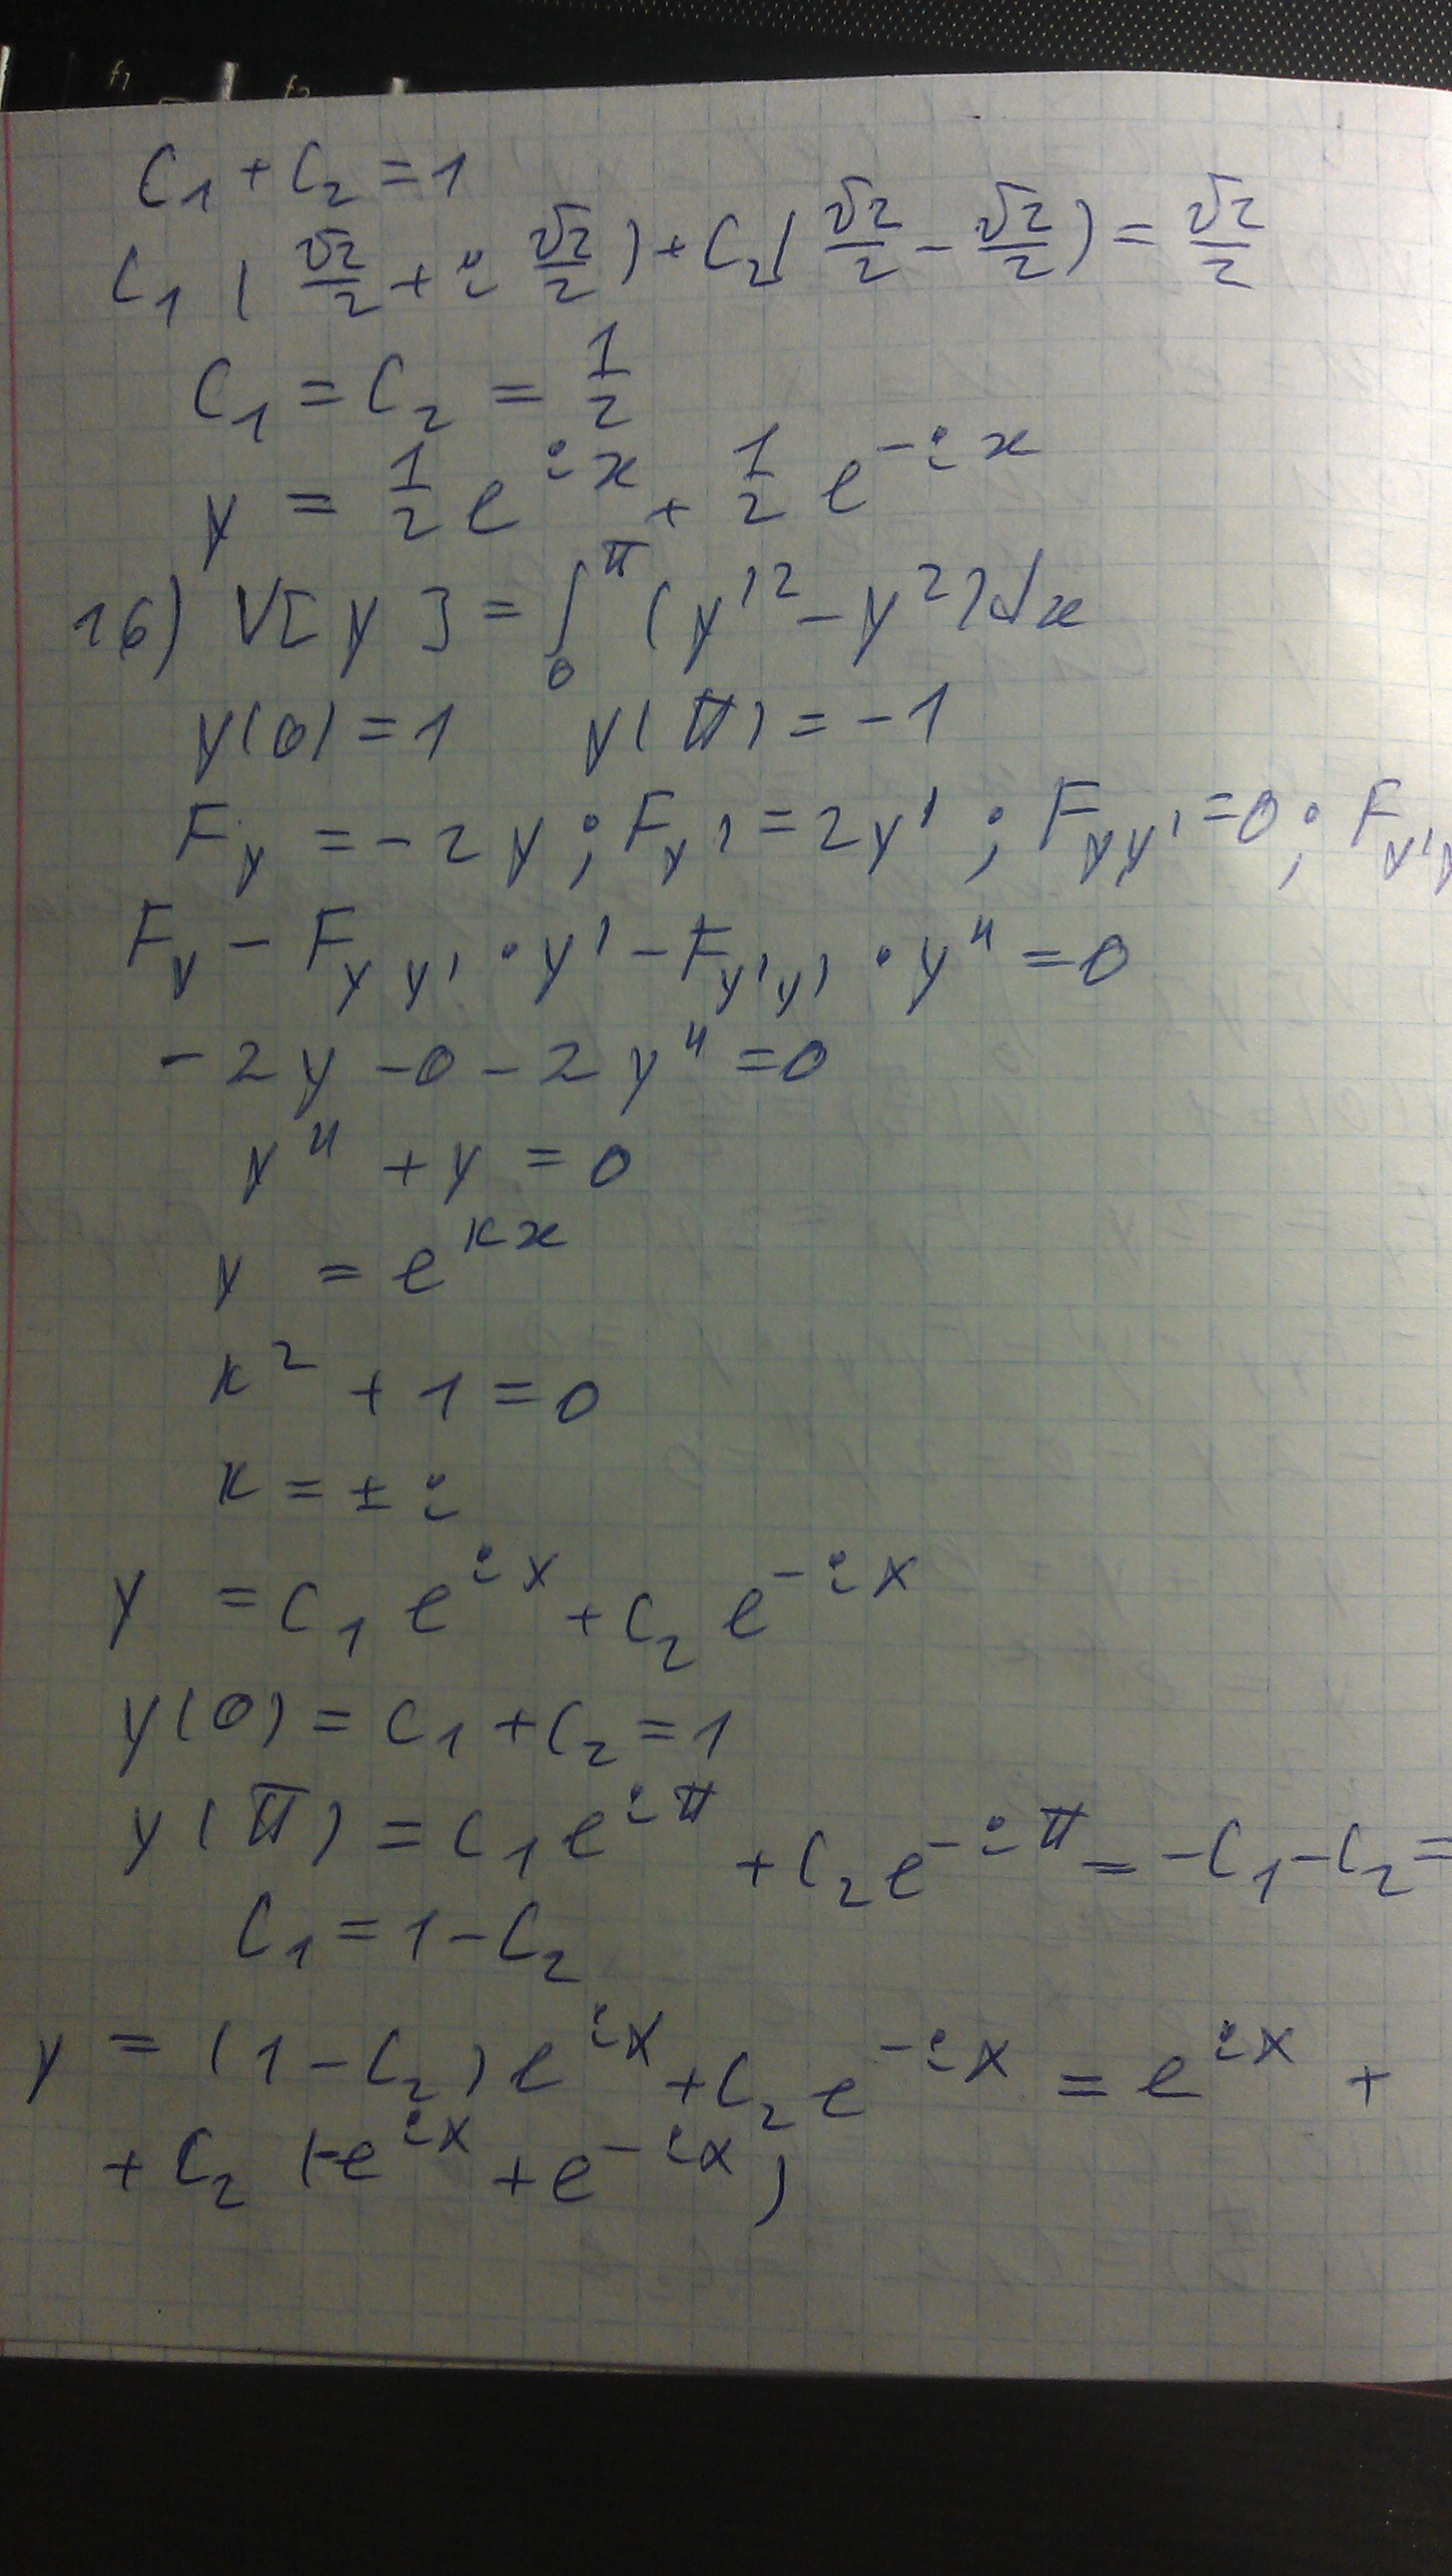 f1
C₁ + C₂ = 1
C₁ ( √2/2 + i √2/2 ) + C₂ ( √2/2 − √2/2 ) = √2/2
C₁ = C₂ = 1/2
y = 1/2 e^{ix} + 1/2 e^{−ix}
16) V[y] = ∫₀^π (y'² − y²) dx
y(0) = 1 y(π) = −1
F_y = −2y ; F_{y'} = 2y' ; F_{yy'} = 0 ; F_{y'y
F_y − F_{yy'} · y' − F_{y'y'} · y'' = 0
−2y − 0 − 2y'' = 0
y'' + y = 0
y = e^{kx}
k² + 1 = 0
k = ± i
y = C₁ e^{ix} + C₂ e^{−ix}
y(0) = C₁ + C₂ = 1
y(π) = C₁ e^{iπ} + C₂ e^{−iπ} = −C₁ − C₂ =
C₁ = 1 − C₂
y = (1 − C₂) e^{ix} + C₂ e^{−ix} = e^{ix} +
+ C₂ (−e^{ix} + e^{−ix})